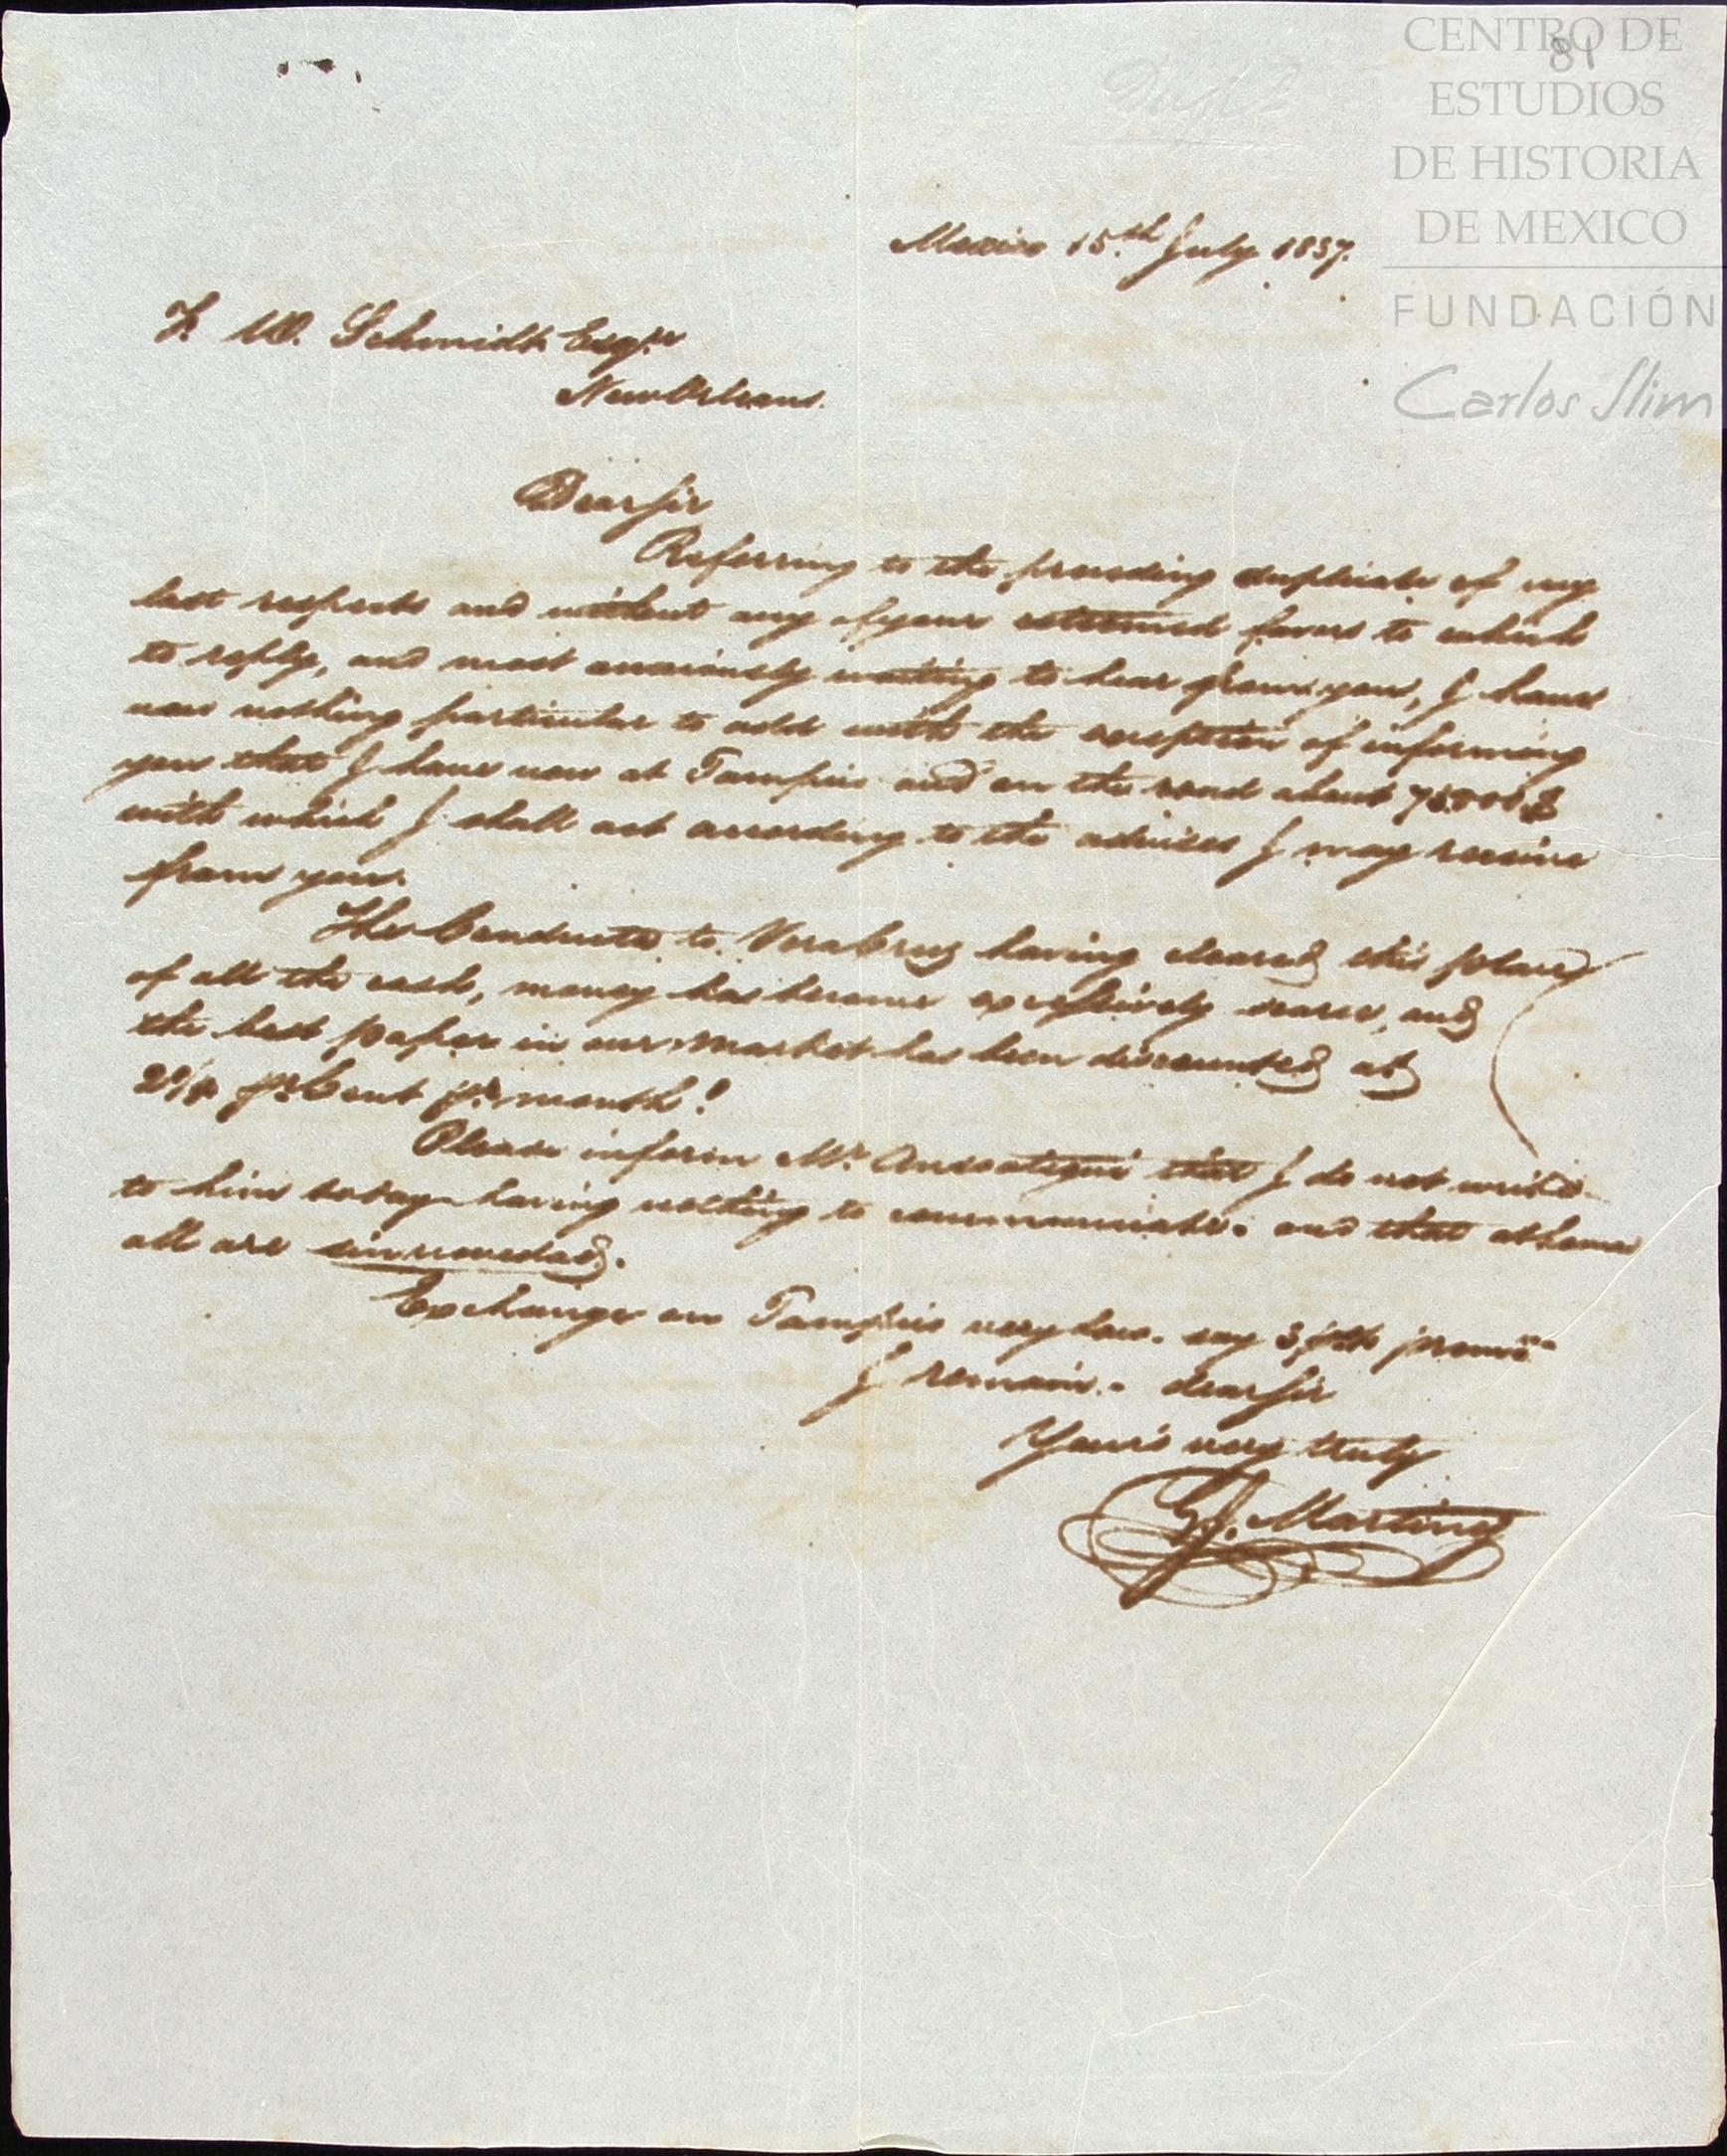 CENTRO DE
81
ESTUDIOS
DE HISTORIA
DE MEXICO
FUNDACIÓN
Carlos Slim
Mexico 15.th July 1837.
F. W. Schmidt Esqre
New Orleans.
Dear Sir
Referring to the preceding duplicate of my
last respects and without any of your esteemed favors to which
to reply, and most anxiously waiting to hear from you, I have
now nothing particular to add with the exception of informing
you that I have now at Tampico and on the road about 75.000$
with which I shall act according to the advices I may receive
from you.
The Conducta to Vera Cruz having cleared this place
of all the cash, money has become excessively scarce, and
the best paper in our market has been discounted at
pr Cent pr month!
Please inform Mr. that I do not write
to him today having nothing to communicate. and that at home
all are sin novedad.
Exchange on Tampico very low. say 3 pct premm
I remain. dear Sir
Your's very truly
Martinez